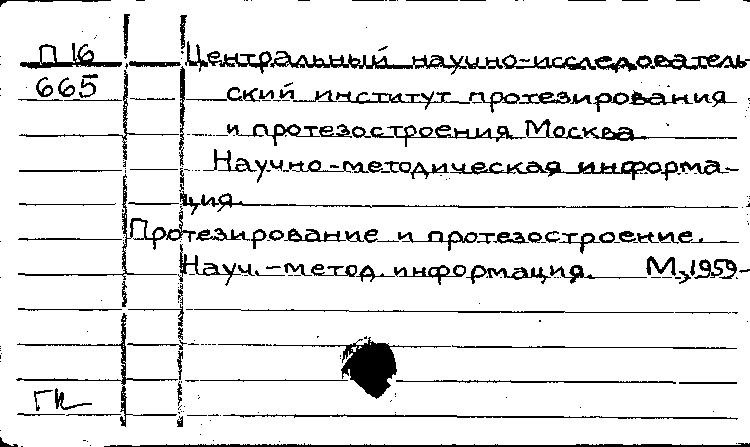 П 16 Центральный научно-исследователь-
665 ский институт протезирования
и протезостроения. Москва.
Научно-методическая информа-
ция.
Протезирование и протезостроение.
Науч.-метод. информация. М., 1959-
ГК